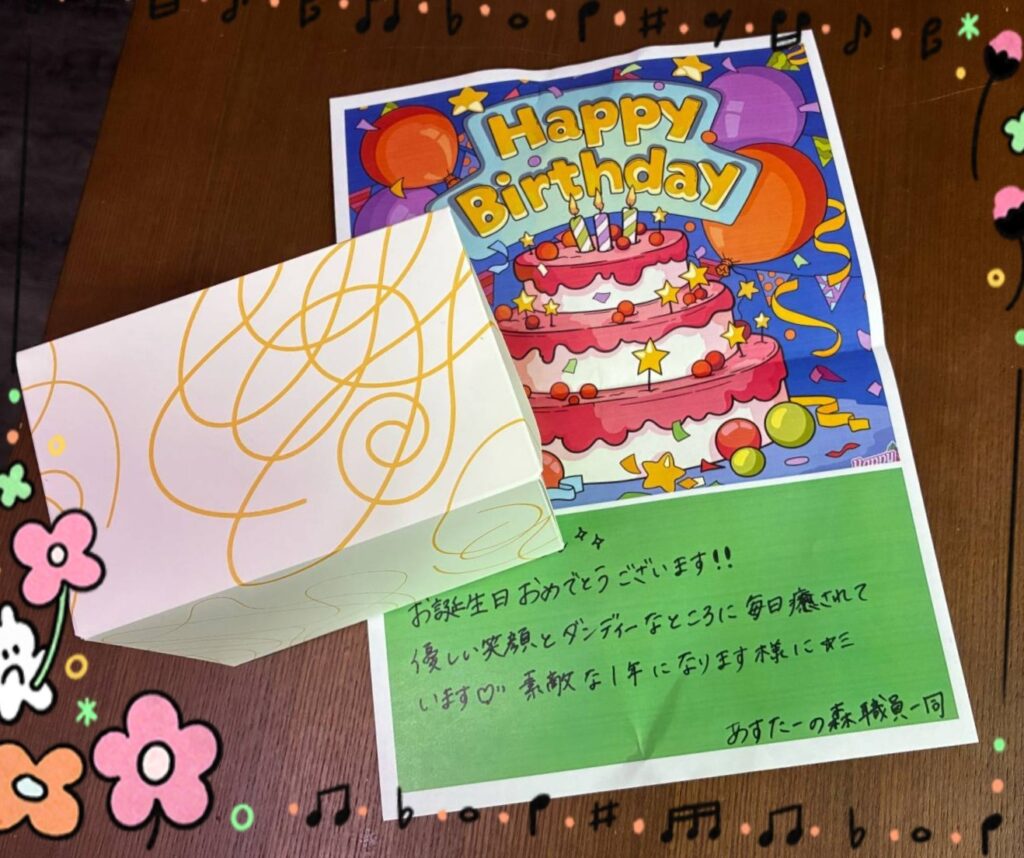 Happy
Birthday
Happy
お誕生日おめでとうございます!!
優しい笑顔とダンディーなところに毎日癒されて
います♡ 素敵な1年になります様に☆ミ
あすたーの森職員一同